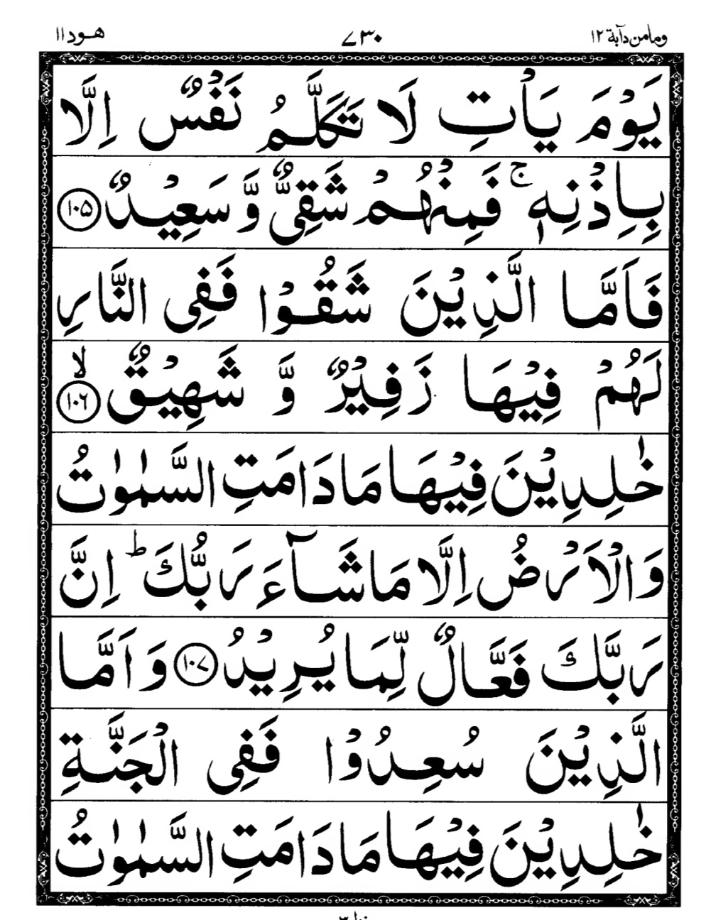 ومامن دآبة ١٢ ٧٣٠ هود ١١
يَوْمَ يَاْتِ لَا تَكَلَّمُ نَفْسٌ اِلَّا
بِاِذْنِهٖ ۚ فَمِنْهُمْ شَقِيٌّ وَّ سَعِيْدٌ ﴿۱۰۵﴾
فَاَمَّا الَّذِيْنَ شَقُوْا فَفِی النَّارِ
لَهُمْ فِيْهَا زَفِيْرٌ وَّ شَهِيْقٌ ﴿۱۰۶﴾ۙ
خٰلِدِيْنَ فِيْهَا مَا دَامَتِ السَّمٰوٰتُ
وَالْاَرْضُ اِلَّا مَا شَآءَ رَبُّكَ ؕ اِنَّ
رَبَّكَ فَعَّالٌ لِّمَا يُرِيْدُ ﴿۱۰۷﴾ وَ اَمَّا
الَّذِيْنَ سُعِدُوْا فَفِی الْجَنَّةِ
خٰلِدِيْنَ فِيْهَا مَا دَامَتِ السَّمٰوٰتُ